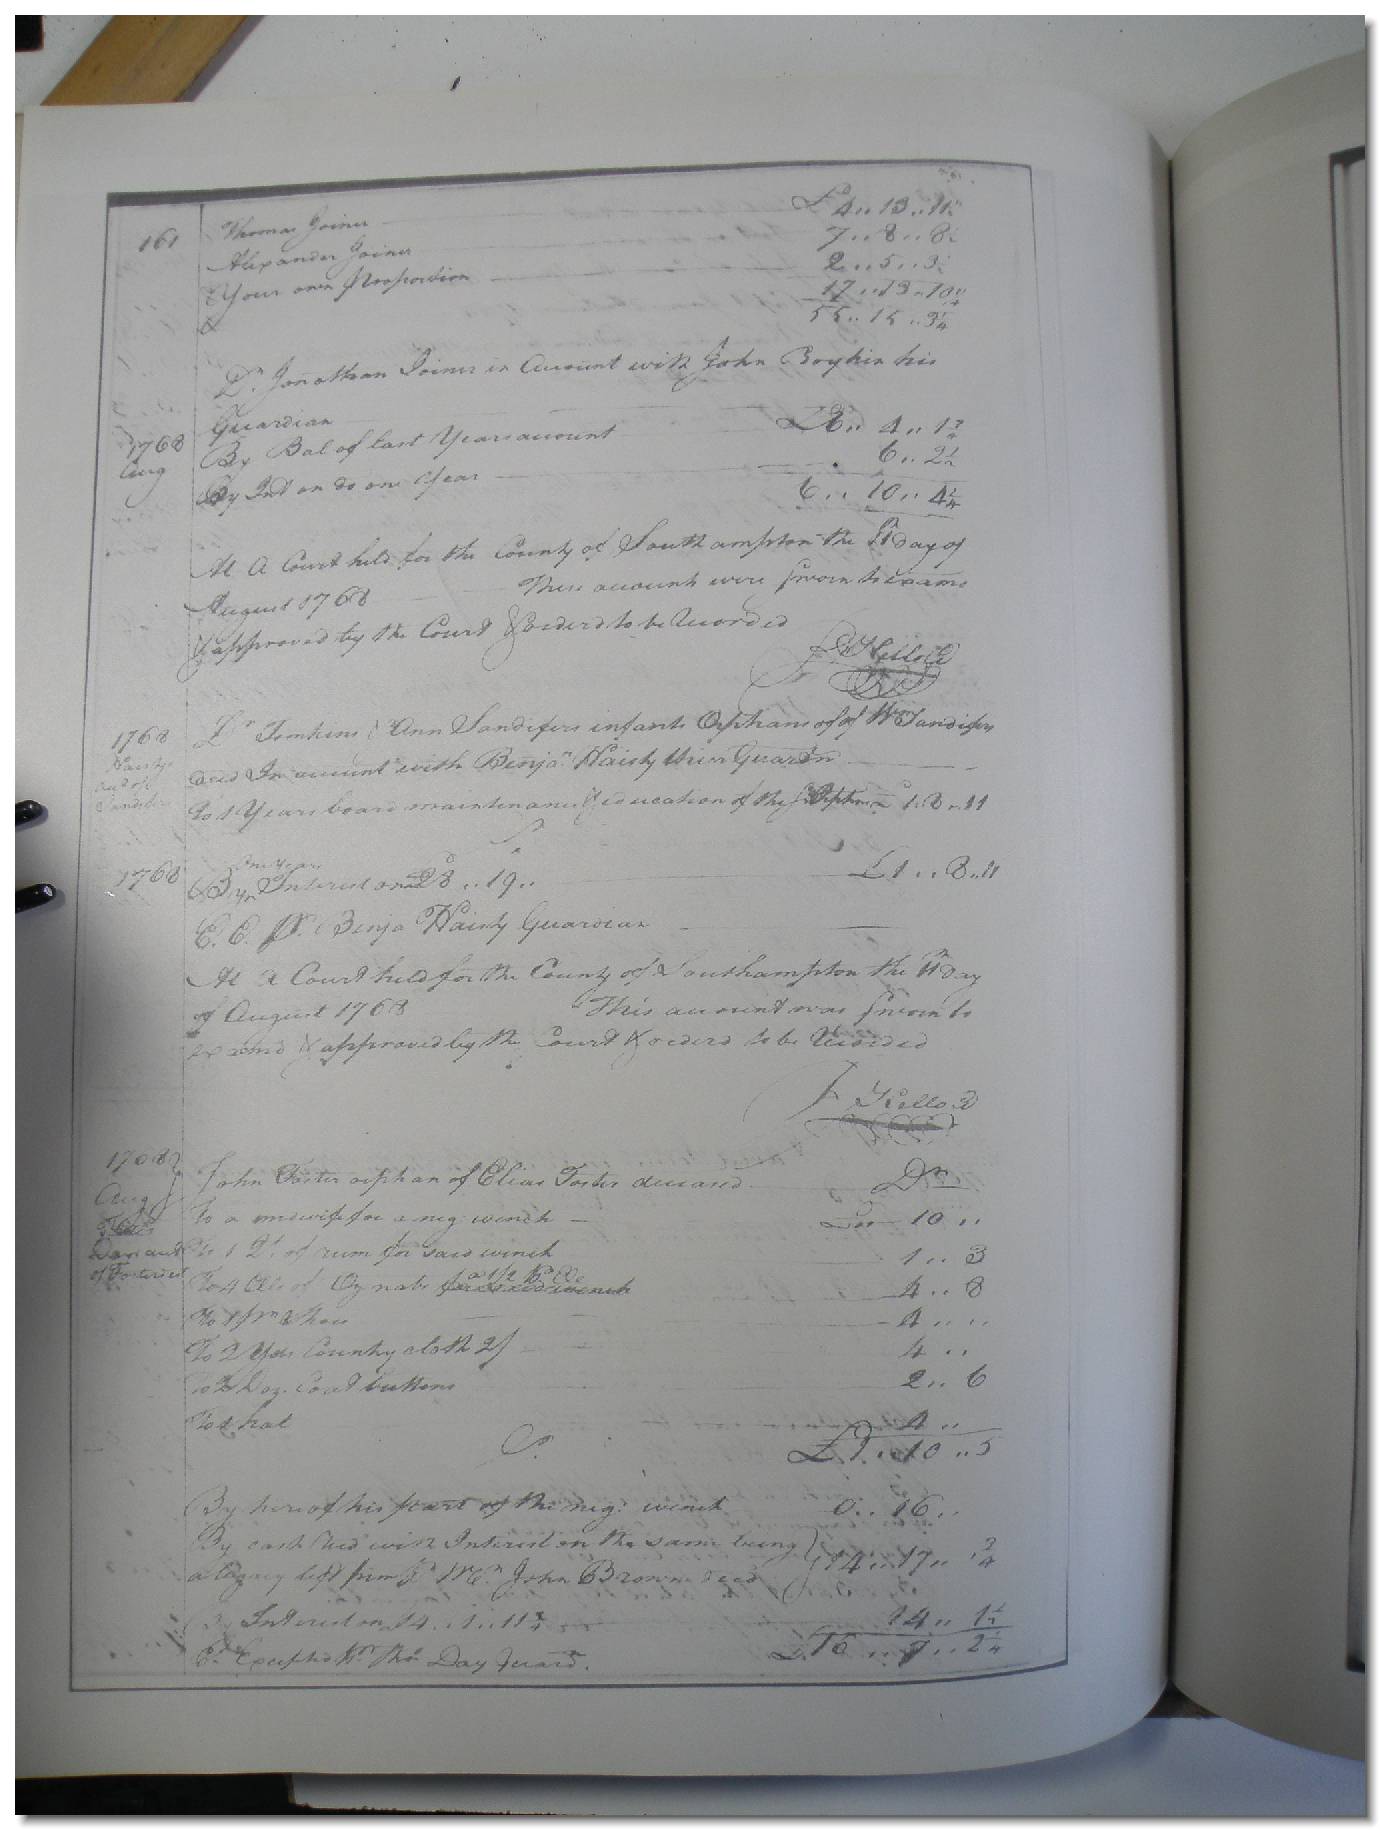 161
Thomas Joiner £4..13..11
Alexander Joiner 7..8..8
Your own Proportion 2..5..3
17..13..10
55..15..3¼
Dr. Jonathan Joiner in Account with John Boykin his
Guardian
1768
Aug
By Bal of last Years account £6.. 4.. 1¾
By Int on do one Year 6.. 2½
6.. 10.. 4¼
At A Court held for the County of Southampton the 11th day of
August 1768 These account were sworn to examd
& approved by the Court & orderd to be Recorded
Kello
1768
Haisty
acct of
Sandifer
Dr Jemkins & Ann Sandifers infants Orphans of of Wm Sandifer
decd In account with Benja Haisty their Guardn
To 1 Years board maintenance & education of the sd Orphn 1..8..11
1768
One Year
By Interest on 28..19.. £1..8..11
E. E. Pr. Benja Haisty Guardian
At A Court held for the County of Southampton the 11th Day
of August 1768 This account was sworn to
examd & approved by the Court & orderd to be Recorded
Kello
1768
Aug
Day acct
of Foster
John Foster orphan of Elias Foster deceased Dr
To a midwife for a neg wench 10..
To 1 Qt of rum for said wench 1..3
To 4 Ells of Oznabs a 1/2 Pr Ell for said wench 4..8
To 1 pr Shoes 4..
To 2 Yds Country cloth 2/ 4..
Doz. Coat buttons 2..6
To a hat 4..
£1..10..5
By hire of his part of the neg. wench 0..16..
By cash Recd with Interest on the same being
a legacy left from John Brown decd 14..17.. ¾
By Interest on 14..1..11¾ 14.. 1½
£16..7..2¼
Excepted Pr Tho Day Guard.